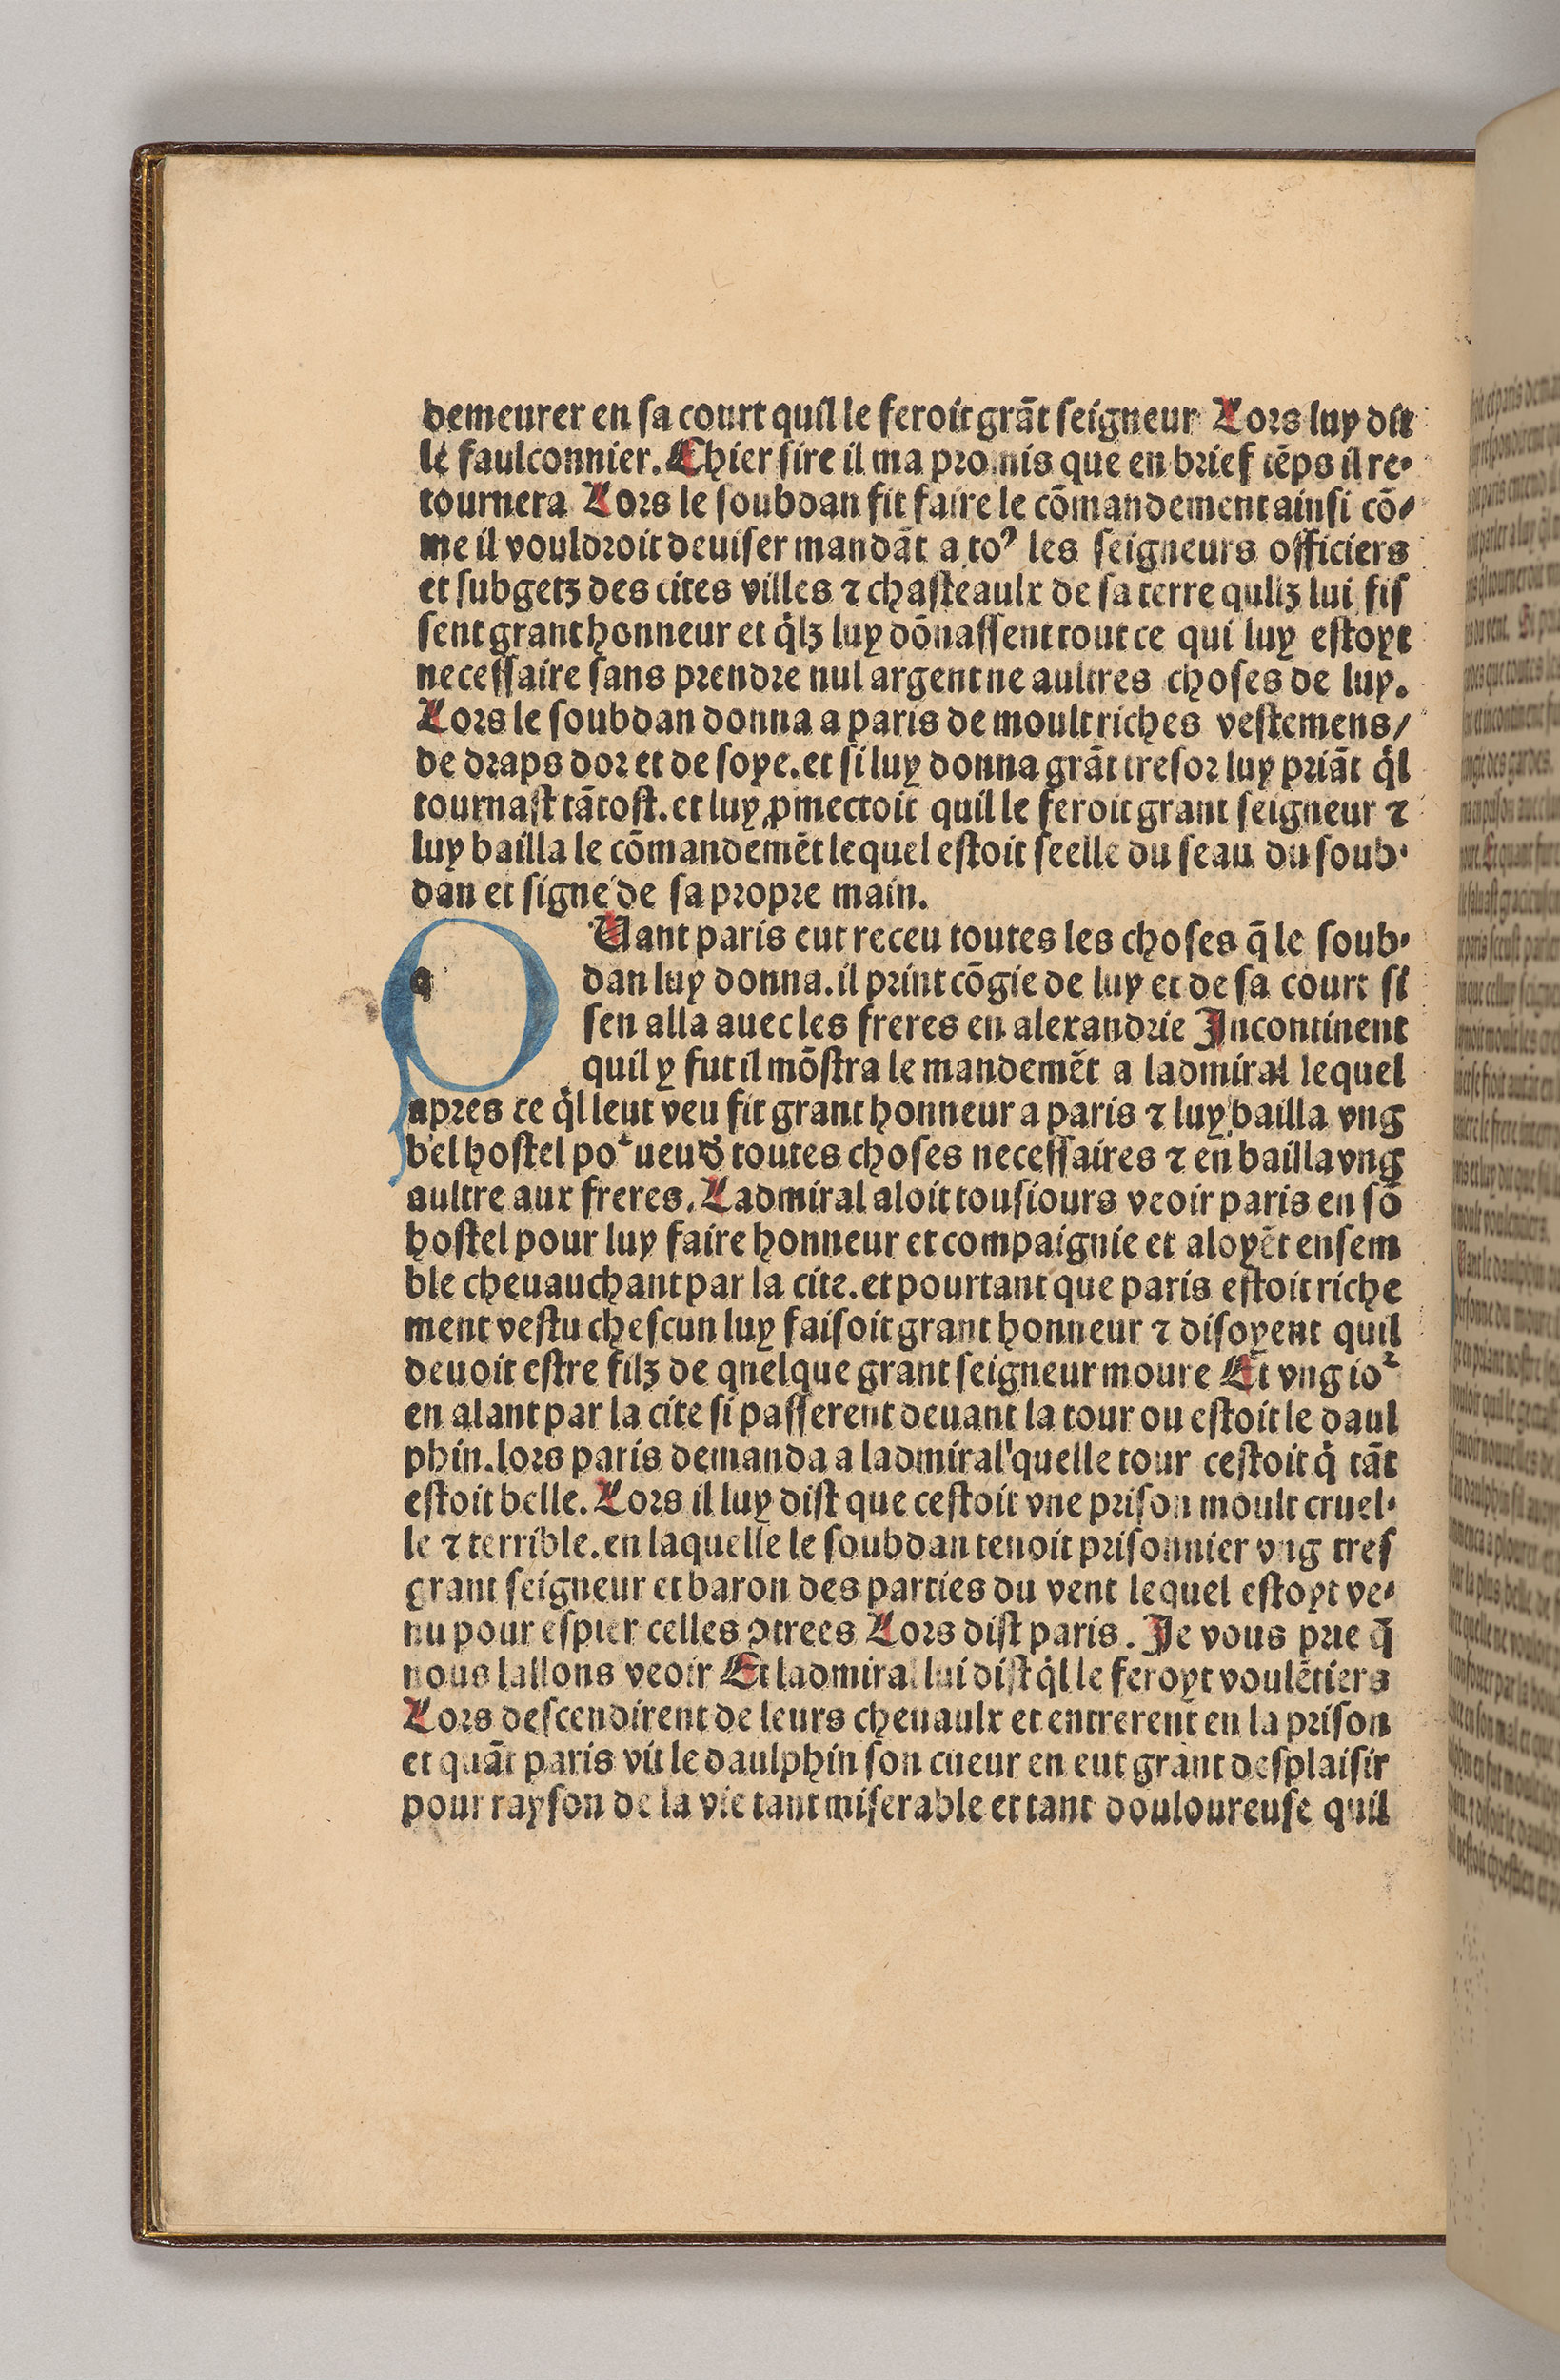 demeurer en ſa court quil le feroit grãt ſeigneur Lors luy dit
le faulconnier. Chier ſire il ma promis que en brief tẽps il re-
tournera Lors le ſoubdan fit faire le cõmandement ainſi cõ-
me il vouldroit deuiſer mandãt a toꝰ les ſeigneurs officiers
et ſubgetz des cites villes ⁊ chaſteaulx de ſa terre quliz lui fiſ
ſent grant honneur et qͥlz luy dõnaſſent tout ce qui luy eſtoyt
neceſſaire ſans prendre nul argent ne aultres choſes de luy.
Lors le ſoubdan donna a paris de moult riches veſtemens/
de draps dor et de ſoye. et ſi luy donna grãt treſor luy priãt qͥl
tournaſt tãtoſt. et luy ꝓmectoit quil le feroit grant ſeigneur ⁊
luy bailla le cõmandemẽt lequel eſtoit ſeelle du ſeau du ſoub-
dan et ſigne de ſa propre main.
q Uant paris eut receu toutes les choſes q̃ le ſoub-
dan luy donna. il print cõgie de luy et de ſa court ſi
ſen alla auec les freres en alexandrie Incontinent
quil y fut il mõſtra le mandemẽt a ladmiral lequel
apres ce qͥl leut veu fit grant honneur a paris ⁊ luy bailla vng
bel hoſtel poᷣueu d̾ toutes choſes neceſſaires ⁊ en bailla vng
aultre aux freres. Ladmiral aloit touſiours veoir paris en ſõ
hoſtel pour luy faire honneur et compaignie et aloyẽt enſem
ble cheuauchant par la cite. et pourtant que paris eſtoit riche
ment veſtu cheſcun luy faiſoit grant honneur ⁊ diſoyent quil
deuoit eſtre filz de quelque grant ſeigneur moure Et vng ioᷣ
en alant par la cite ſi paſſerent deuant la tour ou eſtoit le daul
phin. lors paris demanda a ladmiral quelle tour ceſtoit qͥ tãt
eſtoit belle. Lors il luy diſt que ceſtoit vne priſon moult cruel-
le ⁊ terrible. en laquelle le ſoubdan tenoit priſonnier vng treſ
grant ſeigneur et baron des parties du vent lequel eſtoyt ve-
nu pour eſpier celles ꝯtrees Lors diſt paris. Je vous prie q̃
nous lallons veoir Et ladmiral lui diſt qͥl le feroyt voulẽtiers
Lors deſcendirent de leurs cheuaulx et entrerent en la priſon
et quãt paris vit le daulphin ſon cueur en eut grant deſplaiſir
pour rayſon de la vie tant miſerable et tant douloureuſe quil